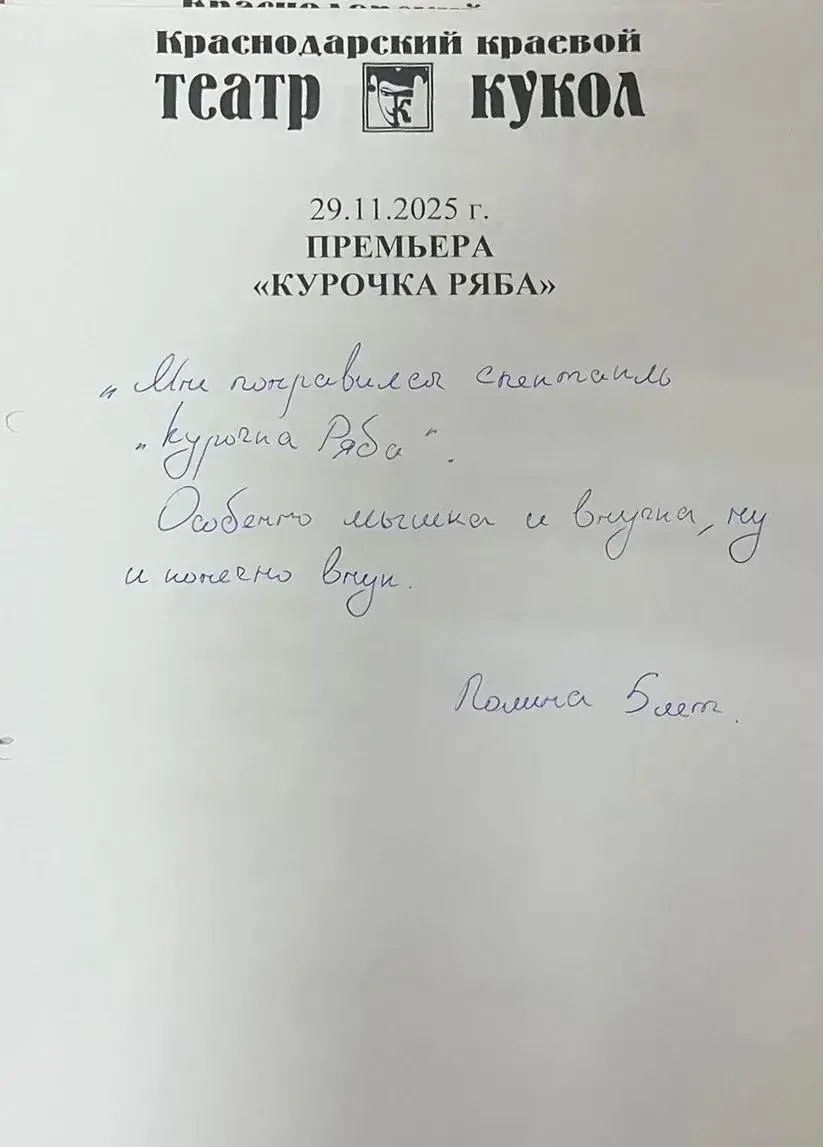 Краснодарский краевой
театр кукол
29.11.2025 г.
ПРЕМЬЕРА
«КУРОЧКА РЯБА»
„Мне понравился спектакль
„Курочка Ряба".
Особенно мышка и внучка, ну
и конечно внук.
Полина 5 лет.